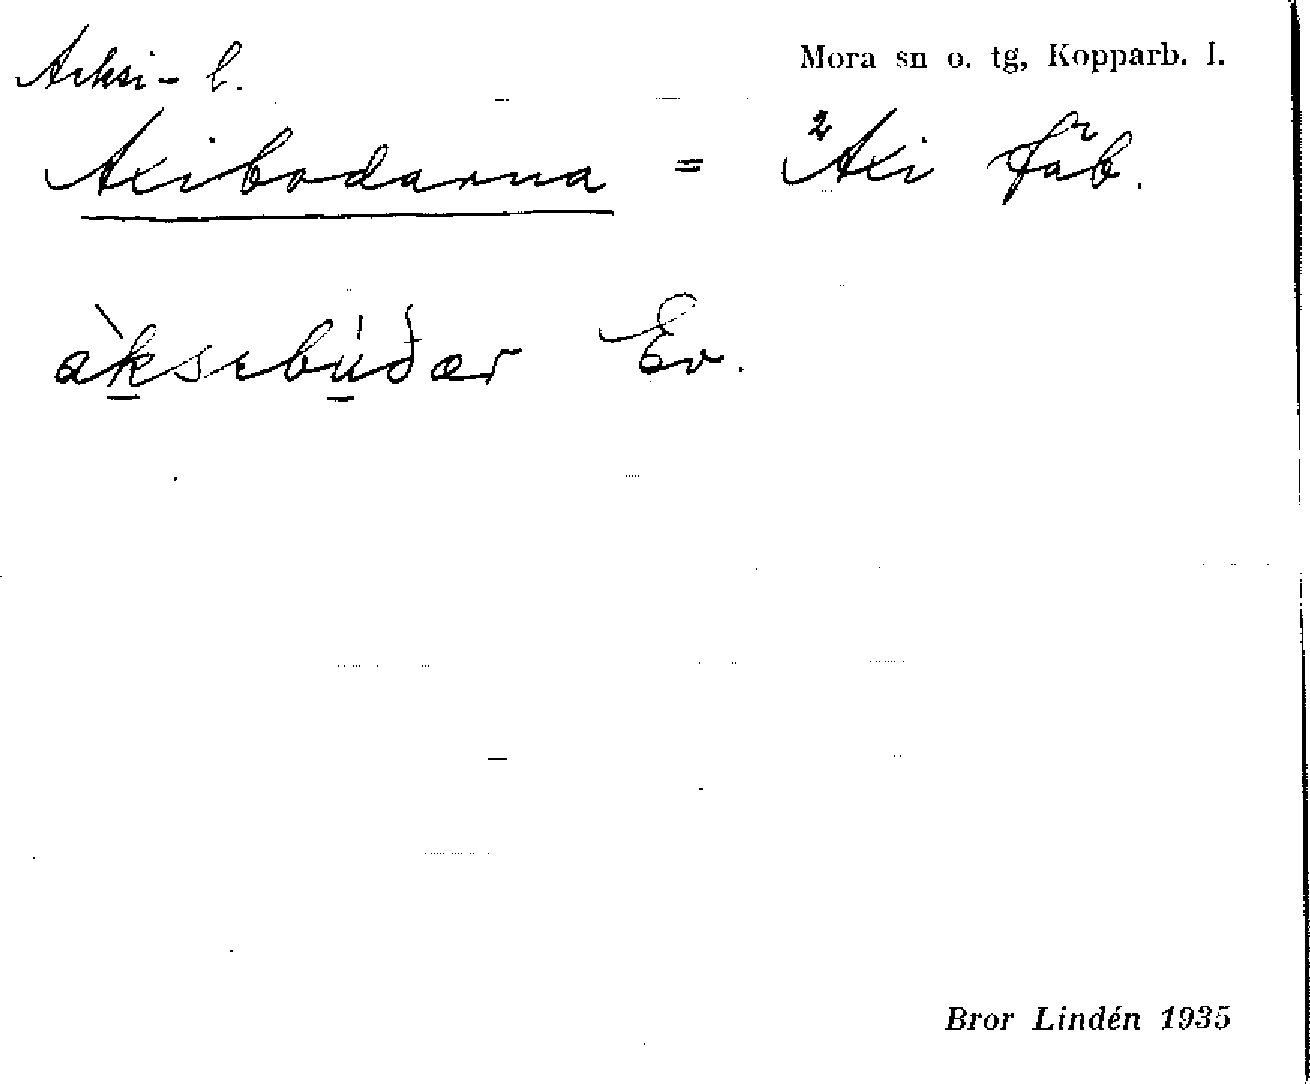 Arksi- b.
Mora sn o. tg, Kopparb. l.
Axibodarna = ²Axi fäb.
àksebúðær Ev.
Bror Lindén 1935